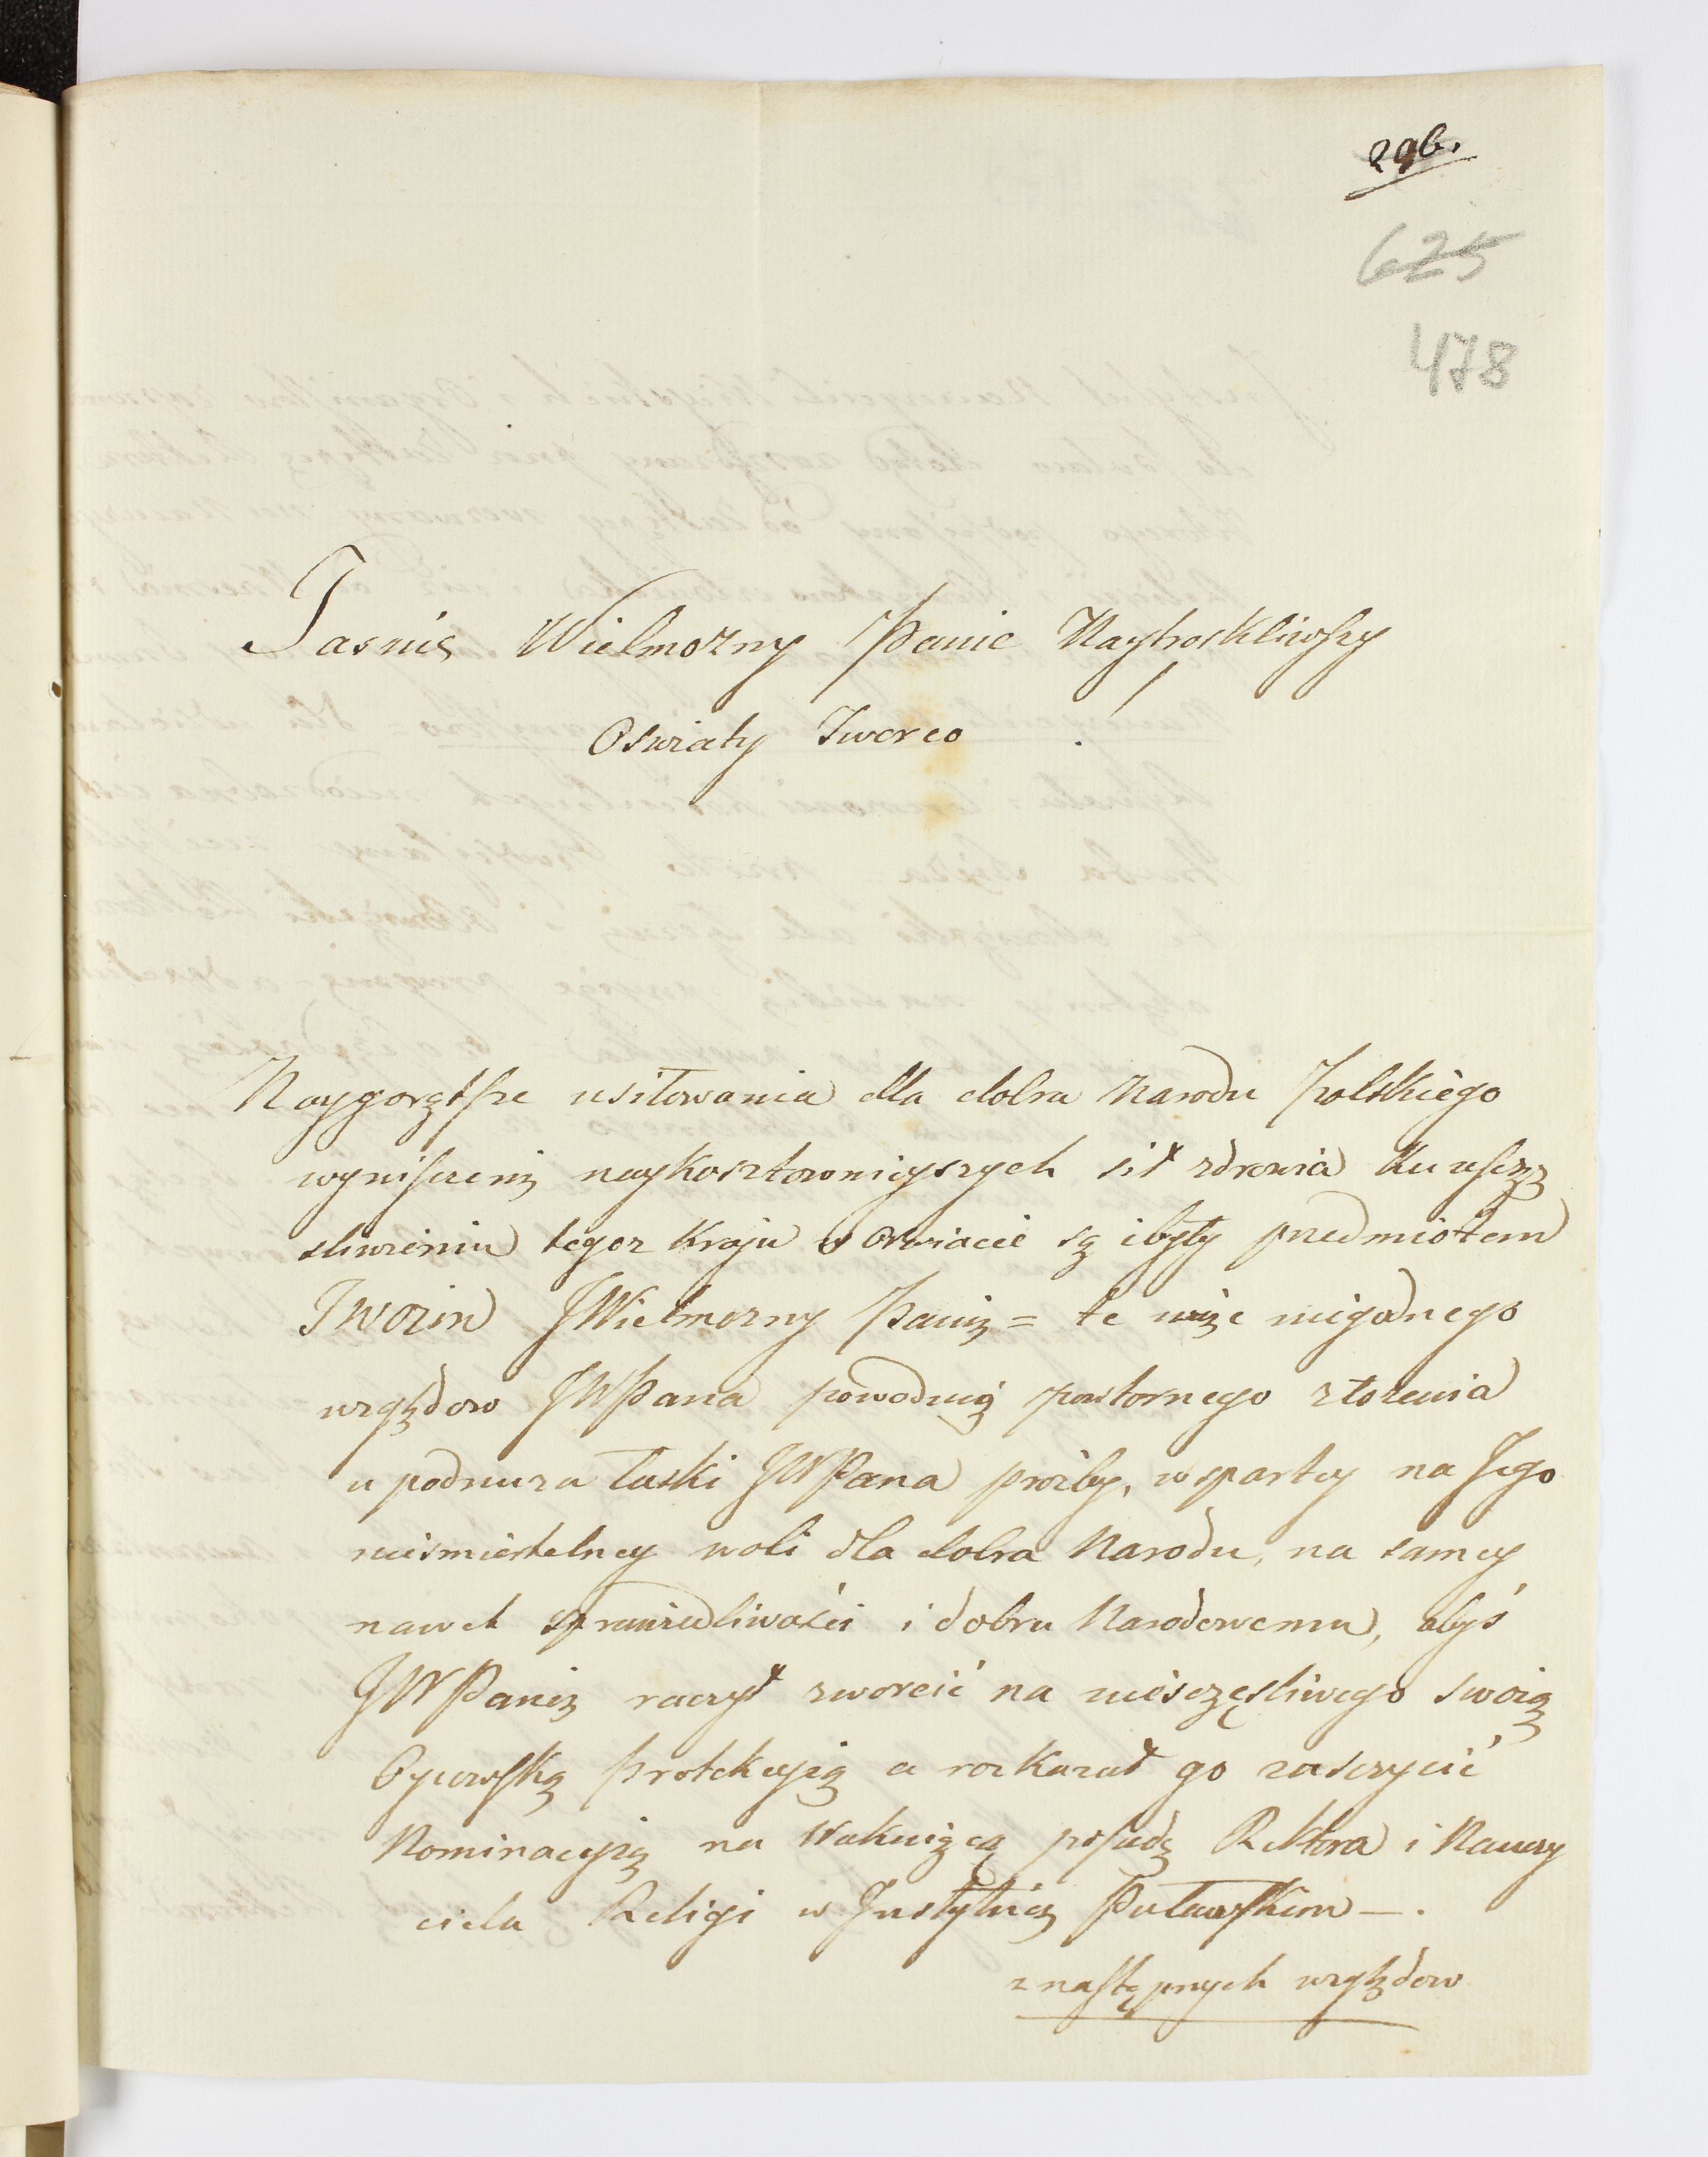 296.
625
478
Jasnię Wielmożny Panie Naytroskliwszy
Oswiaty Tworco !
Naygorętsze usiłowania dla dobra Narodu Polskiego
wyniszcenię naykosztownieyszych sił zdrowia Ku uszczę
sliwieniu tegoz Kraju w oswiacie są i były przedmiotem
Tworin JWielmozny Panię = te więc niegodnego
względow JWPana powoduią powtornego złozenia
u podnuza łaski JWPana prozby, wspartey na Jego
niesmiertelney woli dla dobra Narodu, na samey
nawet sprawiedliwości i dobru Narodowemu, abyś
JWPanię raczył zworcić na niesczęsliwego swoię
Oycowską protekcyią a rozkazał go zasczycić
Nominacyią na Wakuiącą posadę Rektora i Nauczy
ciela Religi w Jnstytucię Puławskim —.
z następnych względow